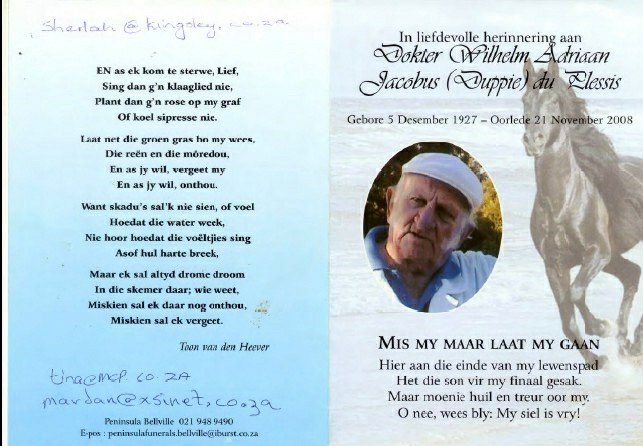 sheilah@kingsley.co.za
EN as ek kom te sterwe, Lief,
Sing dan g'n klaaglied nie,
Plant dan g'n rose op my graf
Of koel sipresse nie.
Laat net die groen gras bo my wees,
Die reën en die môredou,
En as jy wil, vergeet my
En as jy wil, onthou.
Want skadu's sal'k nie sien, of voel
Hoedat die water week,
Nie hoor hoedat die voëltjies sing
Asof hul harte breek,
Maar ek sal altyd drome droom
In die skemer daar; wie weet,
Miskien sal ek daar nog onthou,
Miskien sal ek vergeet.
Toon van den Heever
tina@mcp.co.za
mardan@xsinet.co.za
Peninsula Bellville 021 948 9490
E-pos : peninsulafunerals.bellville@iburst.co.za
In liefdevolle herinnering aan
Dokter Wilhelm Adriaan
Jacobus (Duppie) du Plessis
Gebore 5 Desember 1927 – Oorlede 21 November 2008
MIS MY MAAR LAAT MY GAAN
Hier aan die einde van my lewenspad
Het die son vir my finaal gesak.
Maar moenie huil en treur oor my.
O nee, wees bly: My siel is vry!